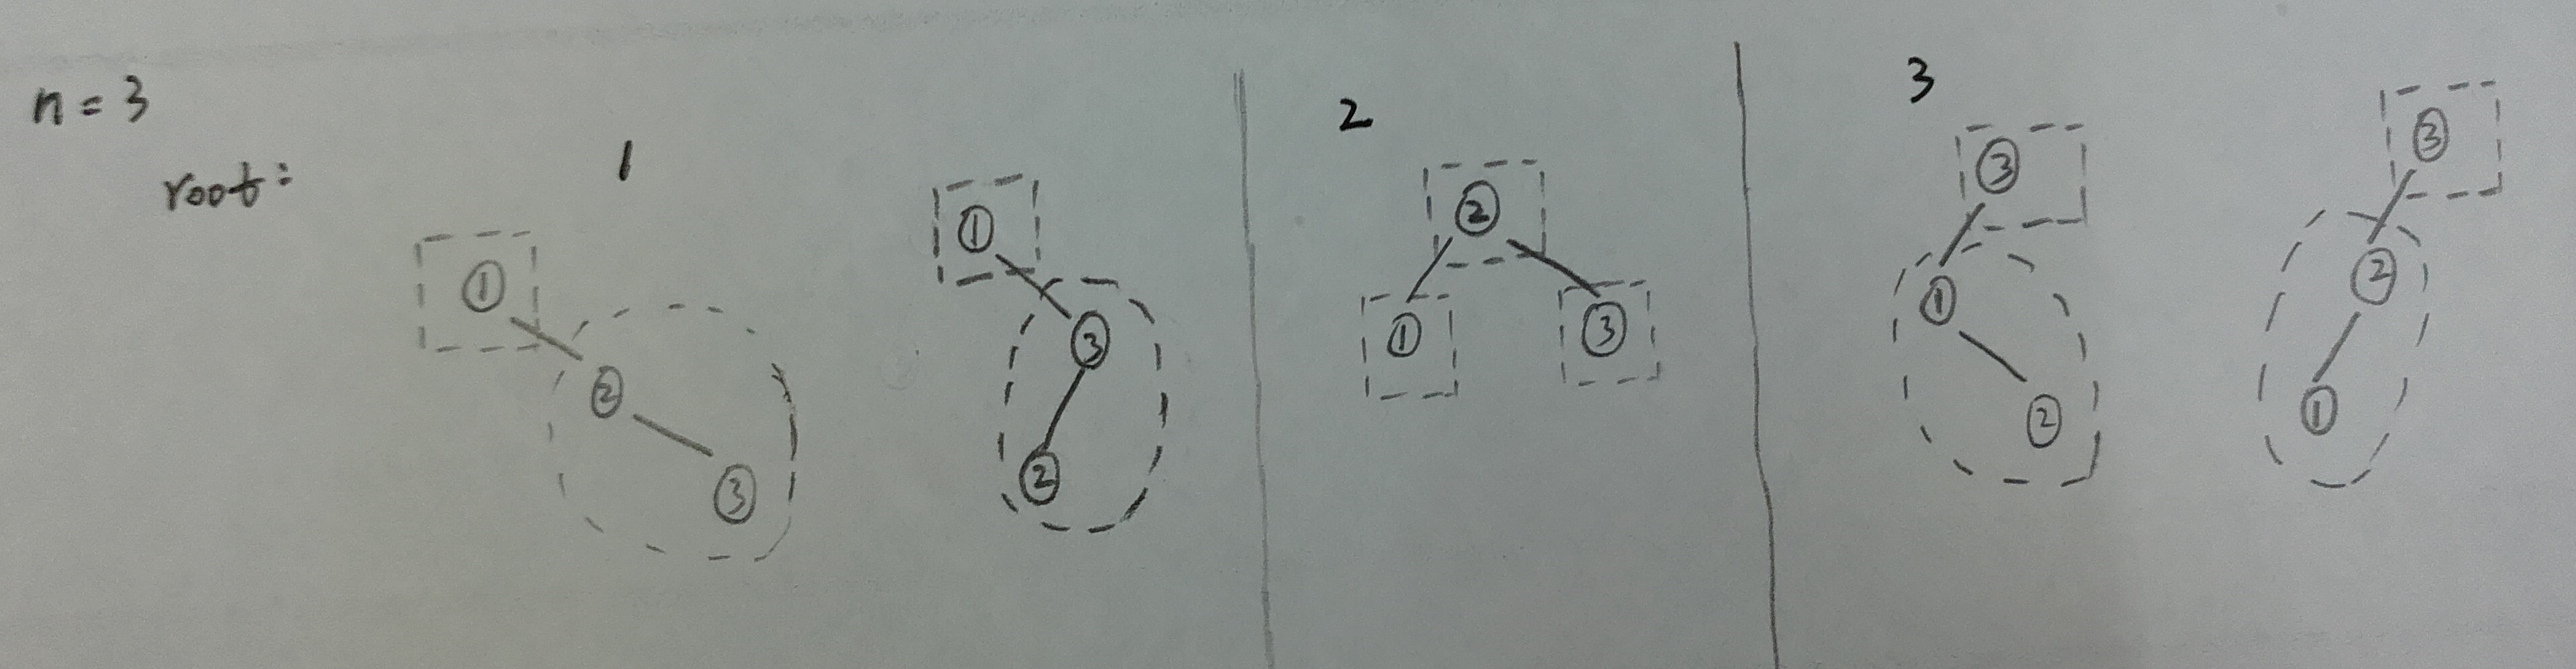 n = 3
root: 1 2 3
① ② ③
① ③ ②
② ① ③
③ ① ②
③ ② ①